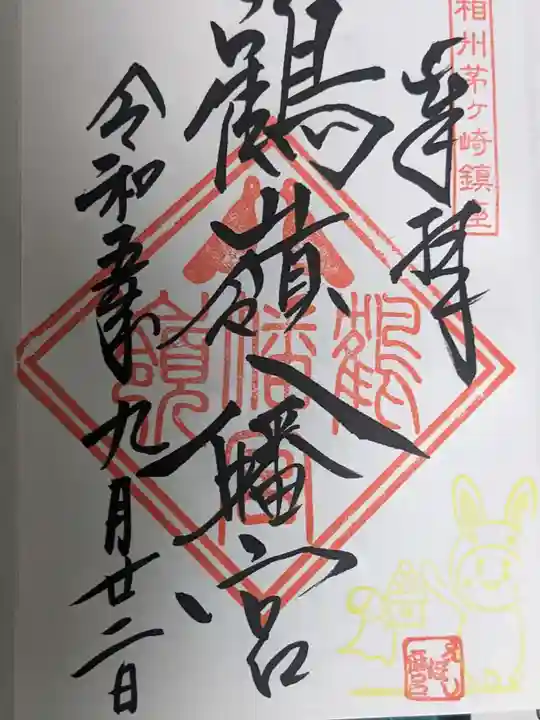 相州茅ヶ崎鎮座
奉拝
鶴嶺八幡宮
鶴嶺八幡宮
令和五年九月廿二日